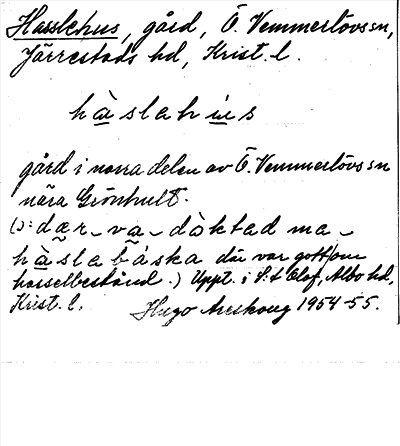 Hasslehus, gård, Ö. Vemmerlövs sn,
Järrestads hd, Krist. l.
hàslahús
gård i norra delen av Ö. Vemmerlövs sn
nära Grönhult.
(ɔ: dær - va - dòktad ma -
hàslabåska där var gott om
hasselbestånd.) Uppt. i S:t Olof, Albo hd,
Krist. l. Hugo Areskoug 1954-55.